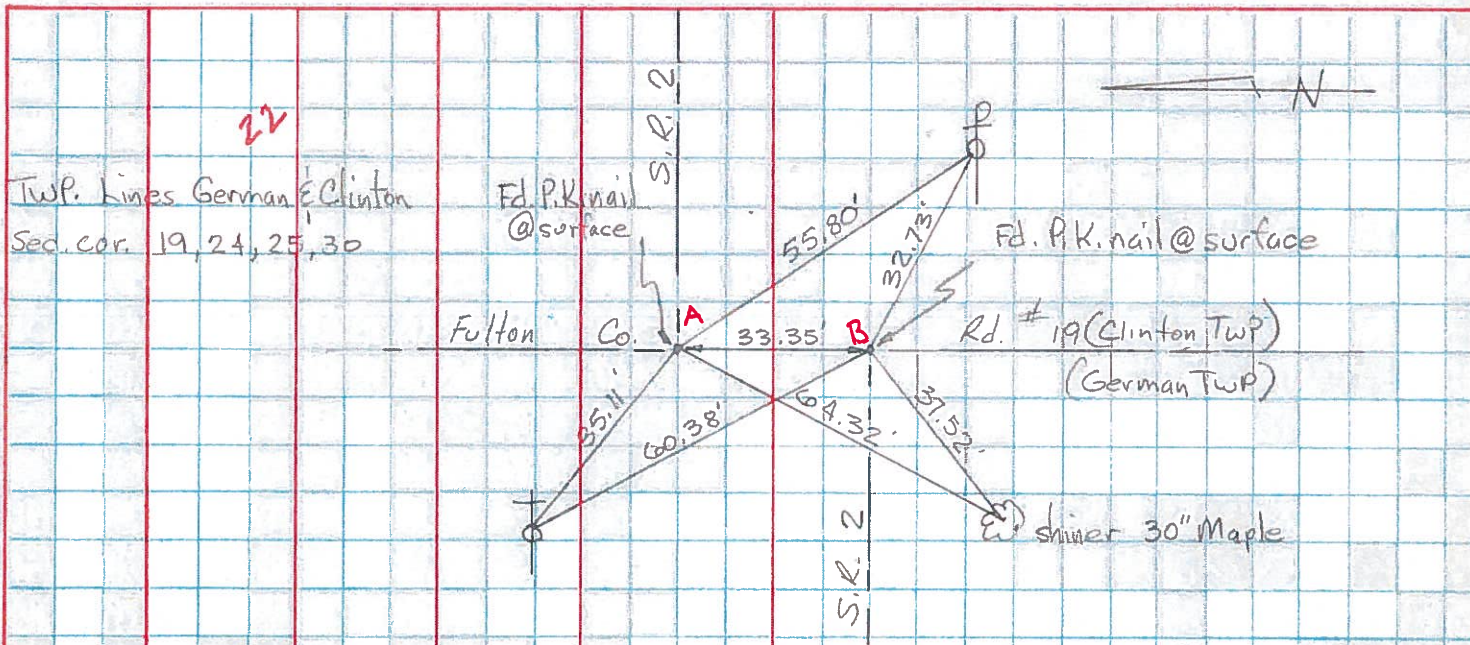 22
Twp. Lines German & Clinton
Sec. cor. 19, 24, 25, 30
Fd. P.K. nail
@ surface
S.R. 2
N
55.80'
32.73'
Fd. P.K. nail @ surface
A
B
Fulton Co. 33.35' Rd. # 19 (Clinton Twp)
(German Twp)
35.11'
60.38'
64.32'
37.52'
shiner 30" Maple
S.R. 2